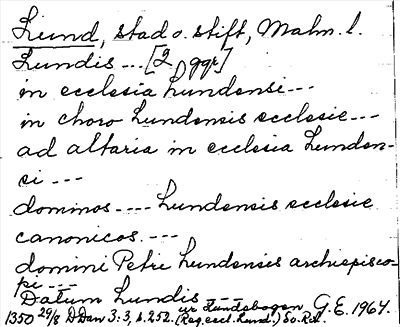 Lund, stad o. stift, Malm. l.
Lundis --- [2 ggr]
in ecclesia Lundensi ---
in choro Lundensis ecclesie ---
ad altaria in ecclesia Lunden-
si ---
dominos ---- Lundensis ecclesie
canonicos. ---
domini Petri Lundensis archiepisco-
pi ---
Datum Lundis ---
ur Lundabogen G.E. 1964.
1350 29/8 DDan 3:3, s. 252. (Reg. eccl. Lund.) Sv. RA.